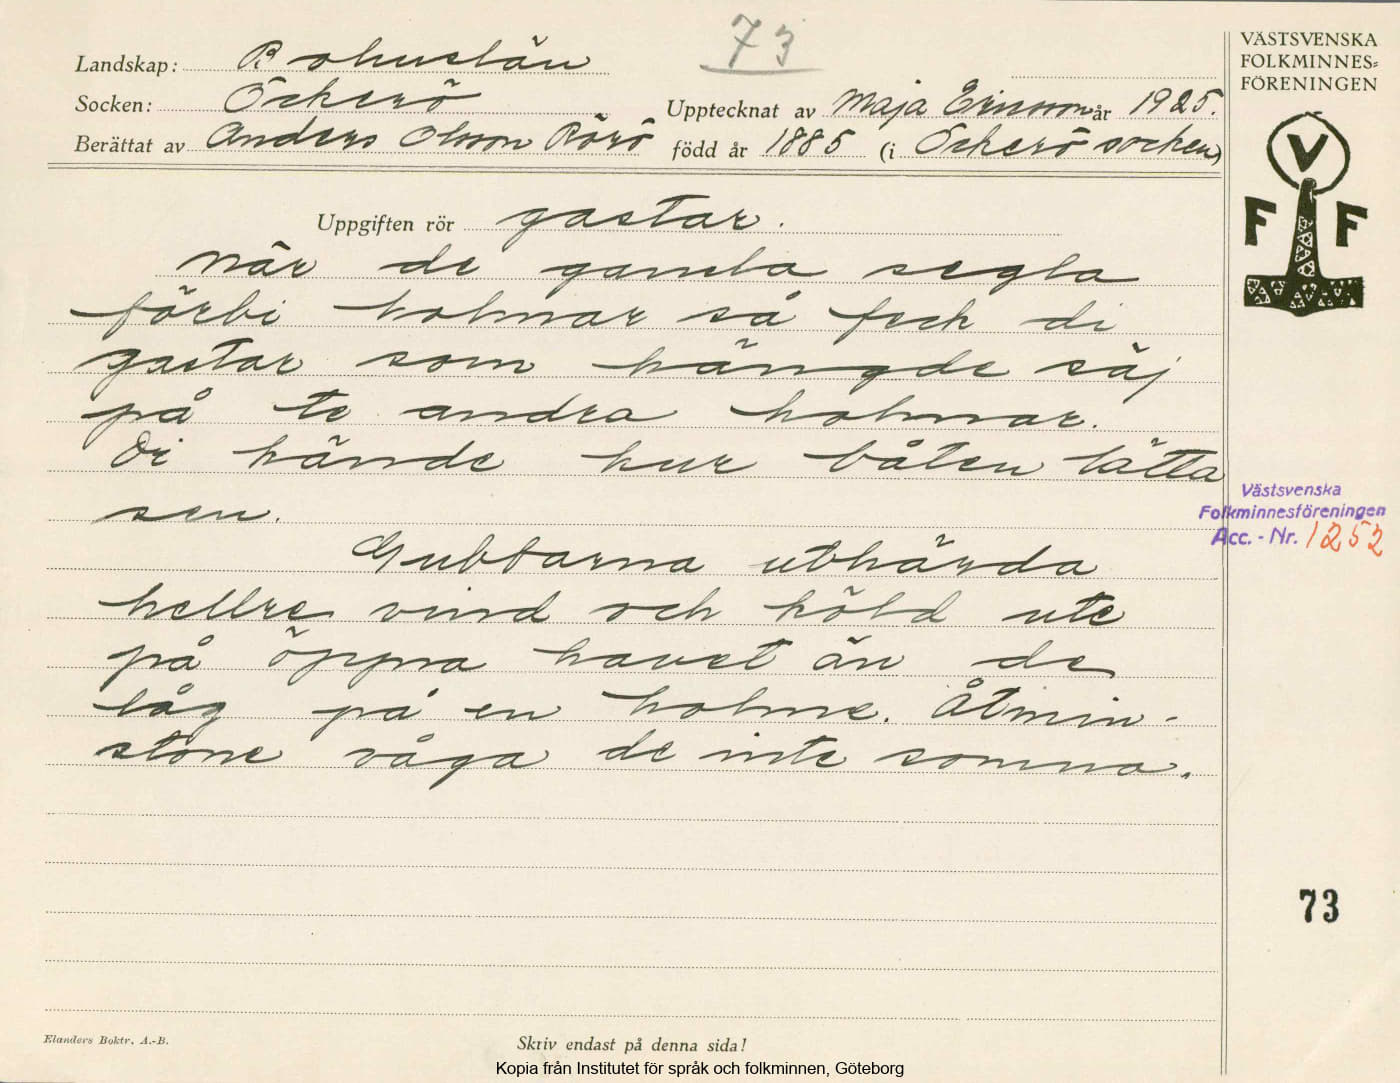 73
Landskap: Bohuslän
Socken: Öckerö
Upptecknat av Maja Ericsson år 1925.
Berättat av Anders Olsson Rörö
född år 1885 (i Öckerö socken)
Uppgiften rör gastar.
När de gamla segla
förbi holmar så feck di
gastar som hängde säj
på te andra holmar.
Di kände hur båten lätta
sen.
Gubbarna uthärda
hellre vind och köld ute
på öppna havet än de
låg på en holme. Åtmin-
stone våga de inte somna.
VÄSTSVENSKA
FOLKMINNES=
FÖRENINGEN
V
F F
Västsvenska
Folkminnesföreningen
Acc. - Nr. 1252
73
Elanders Boktr. A.-B.
Skriv endast på denna sida!
Kopia från Institutet för språk och folkminnen, Göteborg